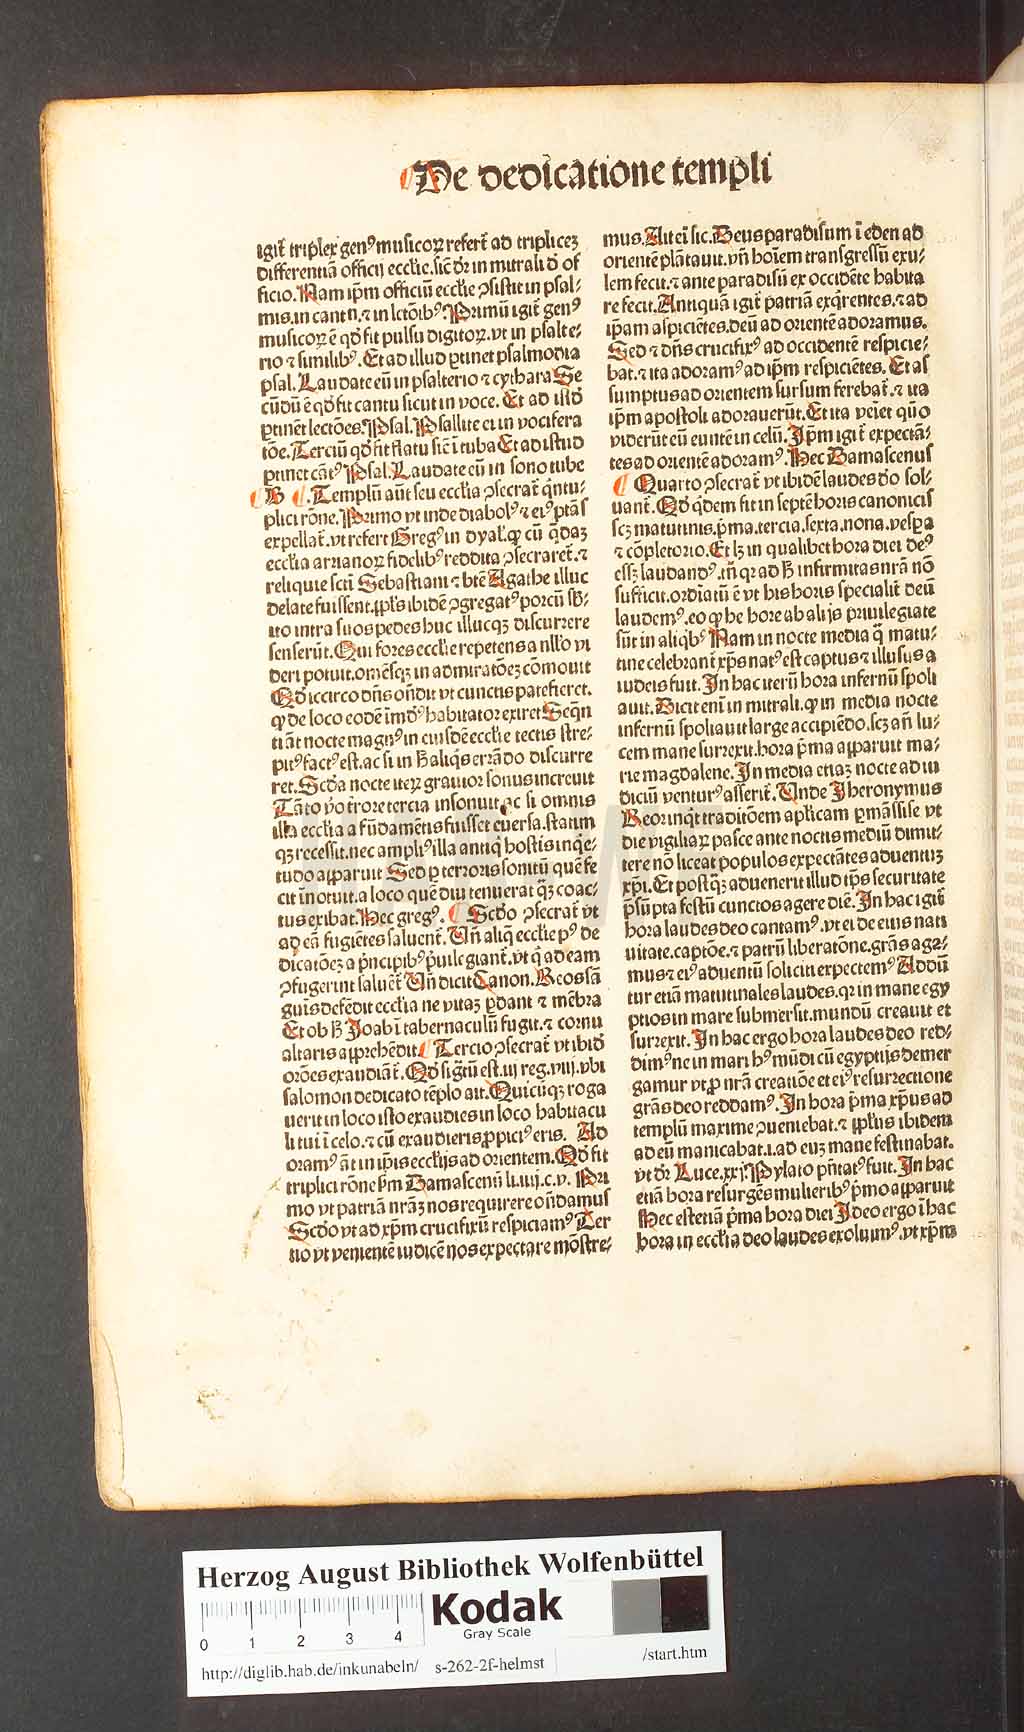 De dedicatione templi
igit᷑ triplex genꝰ musicoꝝ refert᷑ ad triplicez
differentiā officij ecclīe. sic̄ dr̄ in mitrali d̕ of
ficio. Nam ip̄m officiū ecclīe ꝯsistit in psal⸗
mis. in cantu. ⁊ in lectōibꝰ. Primū igit᷑ genꝰ
musicoꝝ ē qd̕ fit pulsu digitoꝝ. vt in psalte⸗
rio ⁊ similibꝰ. Et ad illud ꝑtinet psalmodia
psal. Laudate eū in psalterio ⁊ cythara Se
cūdū ē qd̕ fit cantu sicut in voce. Et ad illd̕
ꝑtinēt lectōes. Psal. Psallite ei in vocifera
tōe. Terciū qd̕ fit flatu sic̄ ī tuba Et ad istud
ꝑtinet cātꝰ Psal. Laudate eū in sono tube
B . Templū aūt seu ecclīa ꝯsecrat᷑ qͥntu⸗
plici rōne. Primo vt inde diabolꝰ ⁊ eiꝰ ptās
expellat᷑. vt refert Gregꝰ in dyal. ꝙ cū qͣdaꝫ
ecclīa arrianoꝝ fidelibꝰ reddita ꝯsecraret᷑. ⁊
reliquie scti Sebastiani ⁊ btē Agathe illuc
delate fuissent. ppl̄s ibidē ꝯgregatꝰ porcū sb̕⸗
ito intra suos pedes huc illucqꝫ discurrere
senserūt. Qui fores ecclīe repetens a nllo̕ vi
deri potuit. om̄esqꝫ in admiratōeꝫ cōmouit
Qd̕ iccirco dn̄s oñdit vt cunctis patefieret.
ꝙ de loco eodē īmūdꝰ habitator exiret Seqn̄
ti āt nocte magnꝰ in eiusdē ecclīe tectis stre⸗
pitꝰ factꝰ est. ac si in h̕ aliqͥs errādo discurre
ret. Scd̕a nocte iteꝝ grauior sonus increuit
Tāto v̕o t̕rore tercia insonuit ac si omnis
illa ecclīa a fūdamētis fuisset euersa. statim
qꝫ recessit. nec ampliꝰ illa antiqͥ hostis inqͥe⸗
tudo apparuit Sed ꝑ terroris sonitū quē fe
cit īnotuit. a loco quē diu tenuerat qͣꝫ coac⸗
tus exibat. Hec gregꝰ. Scd̕o ꝯsecrat᷑ vt
ad eā fugiētes saluent᷑. Vn̄ aliq̄ ecclīe pꝰ de
dicatōeꝫ a pͥncipibꝰ pͥuilegiant᷑. vt qͥ ad eam
ꝯfugerint saluēt᷑ Vn̄ dicit Canon. Reos sā
guis defēdit ecclīa ne vitaꝫ ꝑdant ⁊ mēbra
Et ob h̕ Joab ī tabernaculū fugit. ⁊ cornu
altaris apprehēdit. Tercio ꝯsecrat᷑ vt ibid̕
orōes exaudiāt᷑. Qd̕ sigt̄ū est. iij reg. viij. vbi
salomon dedicato tēplo ait. Quicūqꝫ roga
uerit in loco isto exaudies in loco habitacu
li tui ī celo. ⁊ cū exaudieris ꝓpiciꝰ eris. Ad
oramꝰ āt in ip̄is eccl̄ijs ad orientem. Qd̕ fit
triplici rōne ẜm Damascenū li. iiij. c. v. Pri
mo vt patriā nr̄āꝫ nos requirere on̄damus
Scd̕o vt ad xp̄m crucifixū respiciamꝰ Ter
tio vt venientē iudicē nos expectare mōstre⸗
mus. Ait eī sic. Deus paradisum ī eden ad
orientē plātauit. vn̄ hoīem transgressū exu⸗
lem fecit. ⁊ ante paradisū ex occidēte habita
re fecit. Antiquā igit᷑ patriā exqͥrentes. ⁊ ad
ip̄am aspiciētes. deū ad orientē adoramus.
Sed ⁊ dn̄s crucifixꝰ ad occidentē respicie⸗
bat. ⁊ ita adoramꝰ ad ip̄m respiciētes. Et as
sumptus ad orientem sursum ferebat᷑. ⁊ ita
ip̄m apostoli adorauerūt. Et ita veīet quo
viderūt eū euntē in celū. Ip̄m igit᷑ expectā⸗
tes ad orientē adoramꝰ. Hec Damascenus
Quarto ꝯsecrat᷑ vt ibidē laudes d̕o sol⸗
uant᷑. Qd̕ qͥdem fit in septē horis canonicis
scꝫ matutinis. pͥma. tercia. sexta. nona. vespa
⁊ cōpletorio. Et lꝫ in qualibet hora diei deꝰ
essꝫ laudandꝰ. tn̄ qꝛ ad h̕ infirmitas nr̄a nō
sufficit. ordīatū ē vt his horis specialit᷑ deū
laudemꝰ. eo ꝙ he hore ab alijs priuilegiate
sūt in aliqͥbꝰ Nam in nocte media qͣ matu⸗
tine celebrant᷑ xp̄s natꝰ est captus ⁊ illusus a
iudeis fuit. In hac iterū hora infernū spoli
auit. Dicit enī in mitrali. ꝙ in media nocte
infernū spoliauit large accipiēdo. scꝫ an̄ lu⸗
cem mane surrexit. hora pͥma apparuit ma⸗
rie magdalene. In media etiaꝫ nocte ad iu
diciū venturꝰ asserit᷑. Unde Jheronymus
Reor inqͥt traditōem aplicam ꝑmāsisse vt
die vigiliaꝝ pasce ante noctis mediū dimit⸗
tere nō liceat populos expectātes aduentuꝫ
xp̄i. Et postqͣꝫ aduenerit illud tp̄s securitate
p̄sūpta festū cunctos agere diē. In hac igit᷑
hora laudes deo cantamꝰ. vt ei de eius nati
uitate. captōe. ⁊ patrū liberatōne. grās aga⸗
mus ⁊ eiꝰ aduentū soliciti expectemꝰ Addū
tur etiā matutinales laudes. qꝛ in mane egy
ptios in mare submersit. mundū creauit et
surrexit. In hac ergo hora laudes deo red⸗
dimꝰ ne in mari hꝰ mūdi cū egyptijs demer
gamur vt ꝓ nr̄a creatiōe et eiꝰ resurrectione
grās deo reddamꝰ. In hora pͥma xp̄us ad
templū maxime ꝯueniebat. ⁊ ppl̄us ibidem
ad eū manicabat. i. ad euꝫ mane festinabat.
vt dr̄ Luce. xxj. Pylato pn̄tatꝰ fuit. In hac
etiā hora resurgēs mulieribꝰ pͥmo apparuit
Hec est etiā pͥma hora diei Ideo ergo ī hac
hora in ecclīa deo laudes exoluimꝰ. vt xp̄m
Herzog August Bibliothek Wolfenbüttel
0 1 2 3 4
Kodak
Gray Scale
http://diglib.hab.de/inkunabeln/ s-262-2f-helmst /start.htm